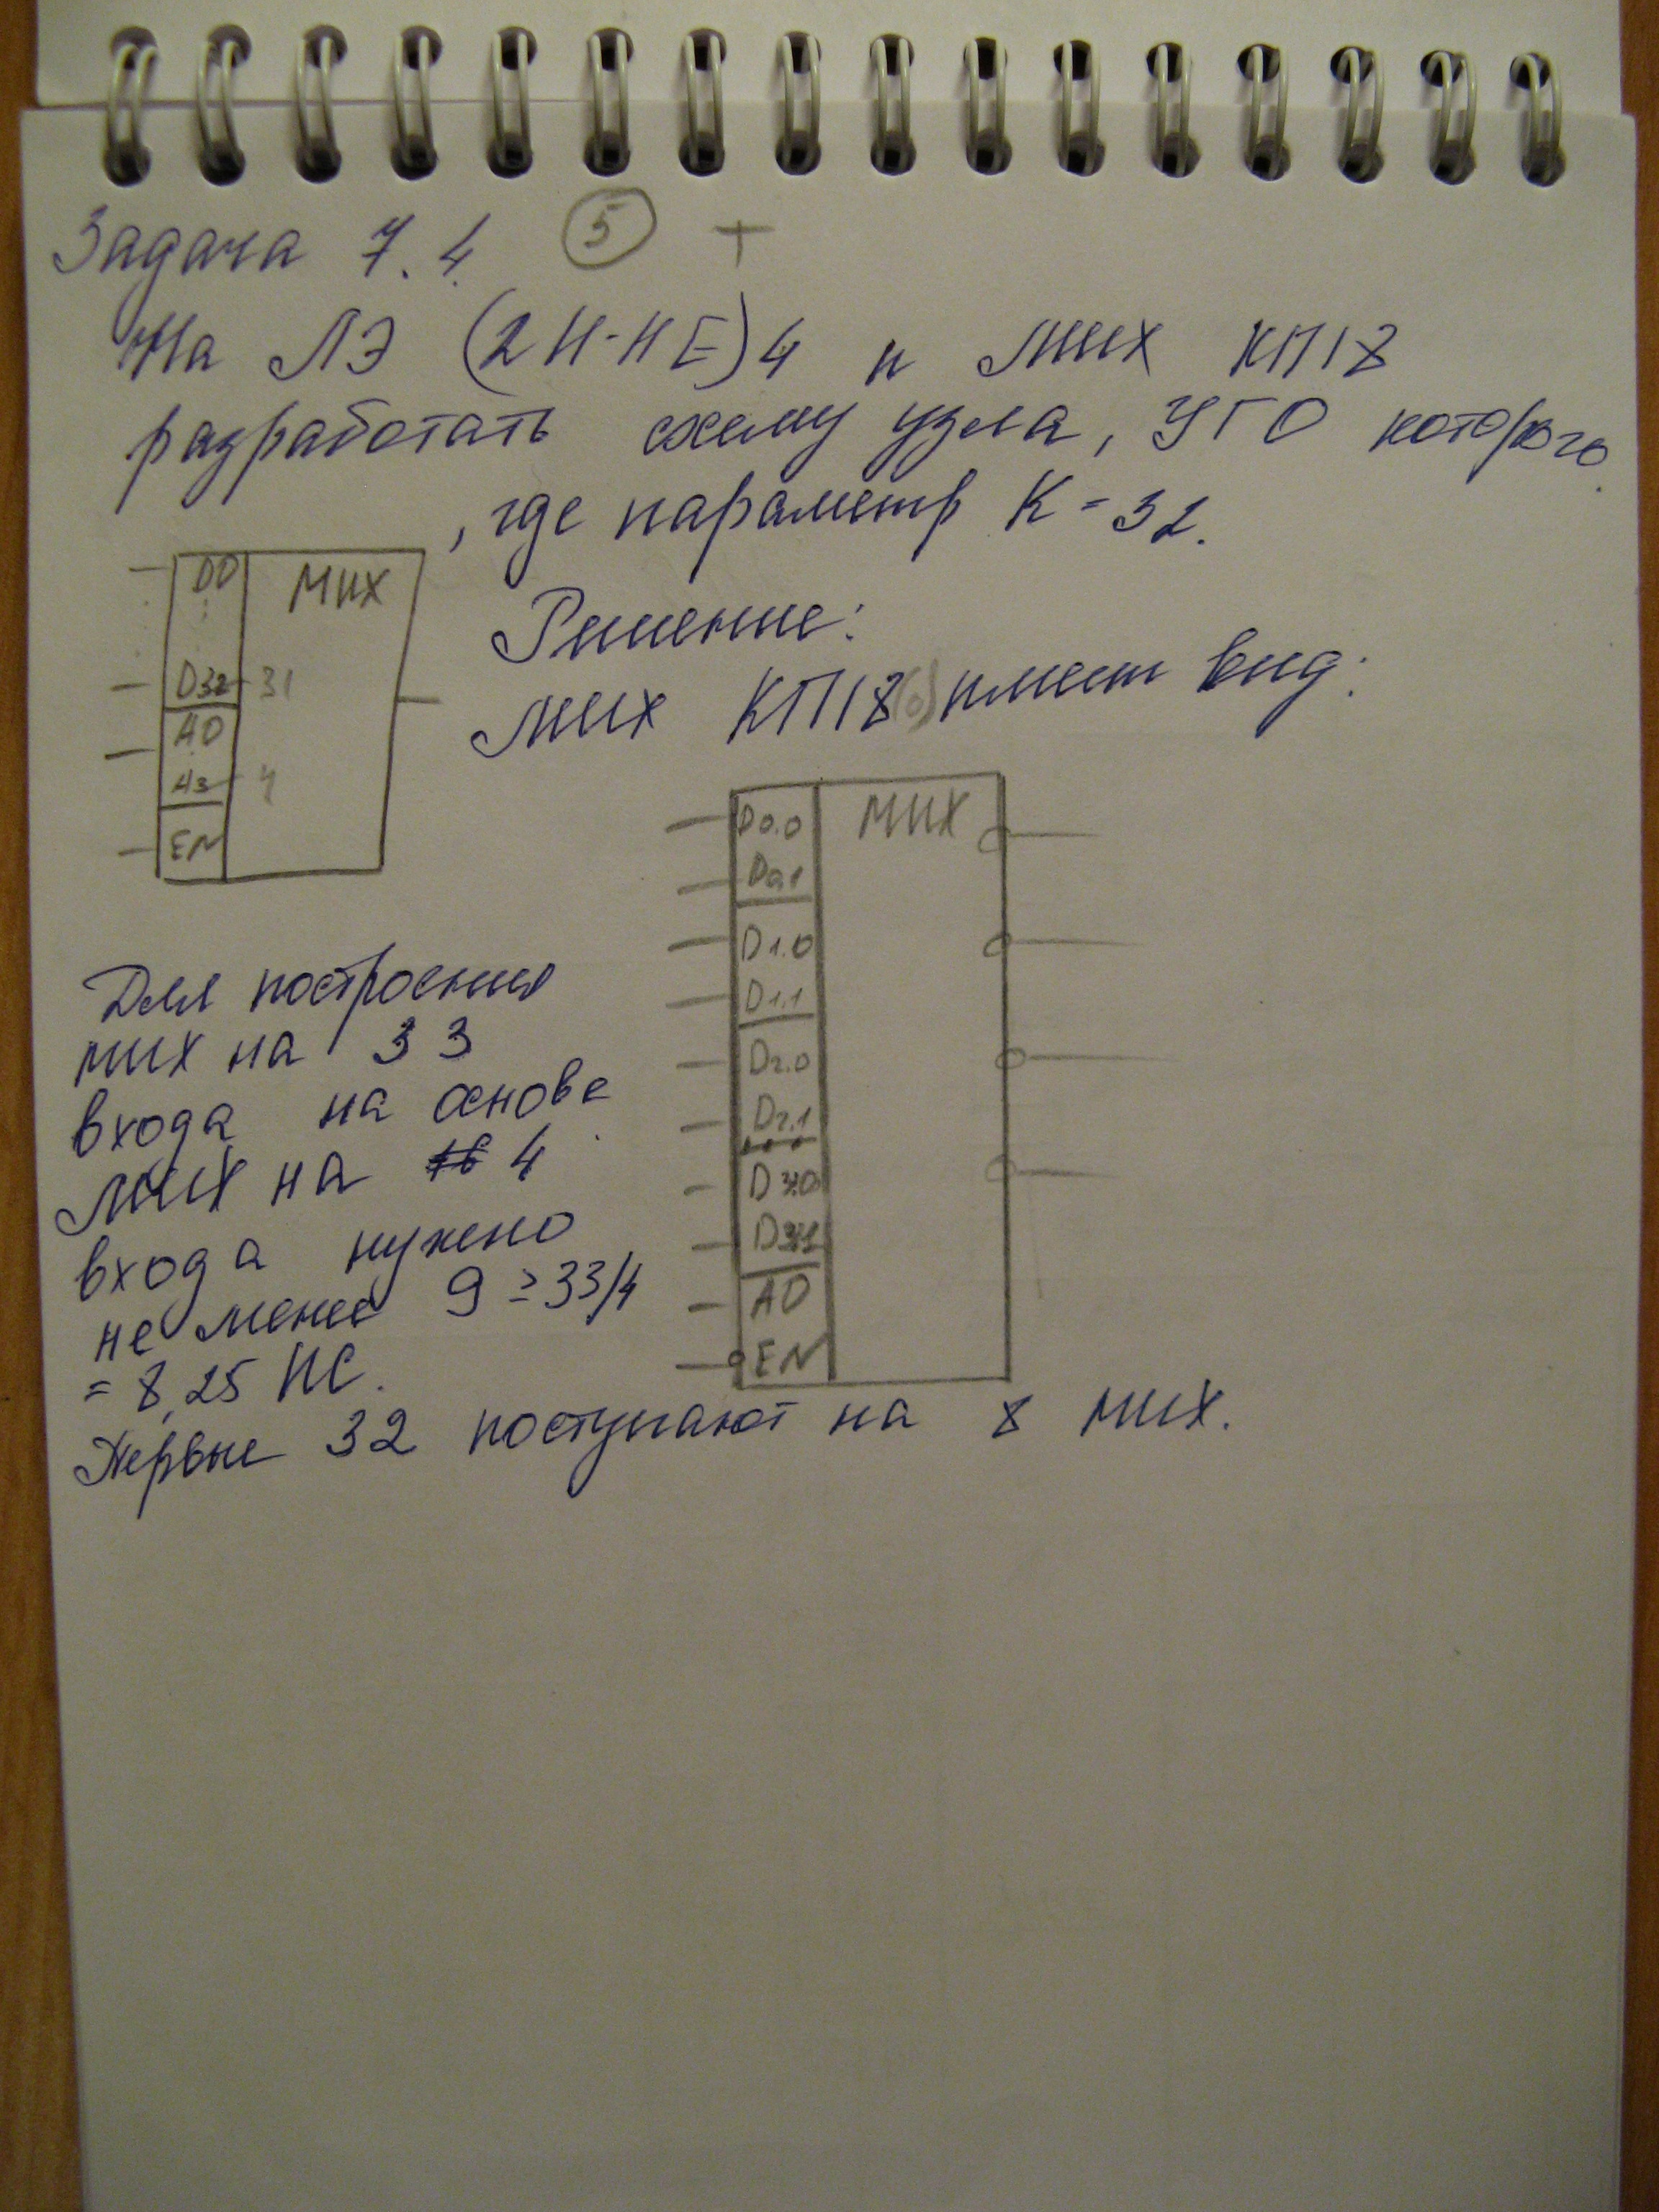 Задача 7.4. 5 +
На ЛЭ (2И-НЕ)4 и MUX КП18
разработать схему узла, УГО которого
, где параметр K = 32.
D0 MUX
D32 31
A0
A3 4
EN
Решение:
MUX КП18 имеет вид:
D0.0 MUX
D0.1
D1.0
D1.1
D2.0
D2.1
D3.0
D3.1
A0
EN
Для построения
MUX на 33
входа на основе
MUX на 4
входа нужно
не менее 9 ≥ 33/4
= 8,25 ИС.
Первые 32 поступают на 8 MUX.